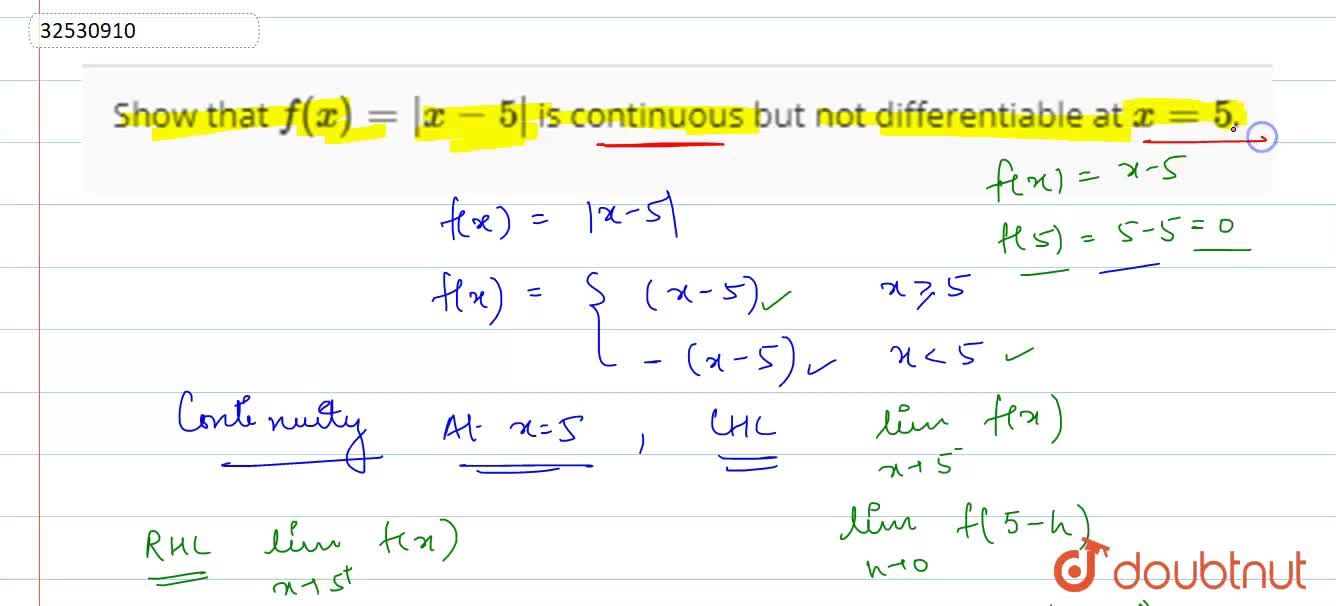 32530910
Show that f(x) = |x − 5| is continuous but not differentiable at x = 5.
f(x) = x-5
f(x) = |x-5|
f(5) = 5-5 = 0
f(x) = { (x-5) ✓ x ⩾ 5
-(x-5) ✓ x < 5 ✓
Continuity At x=5 , LHL lim f(x)
x→5⁻
lim f(5-h)
h→0
RHL lim f(x)
x→5⁺
doubtnut